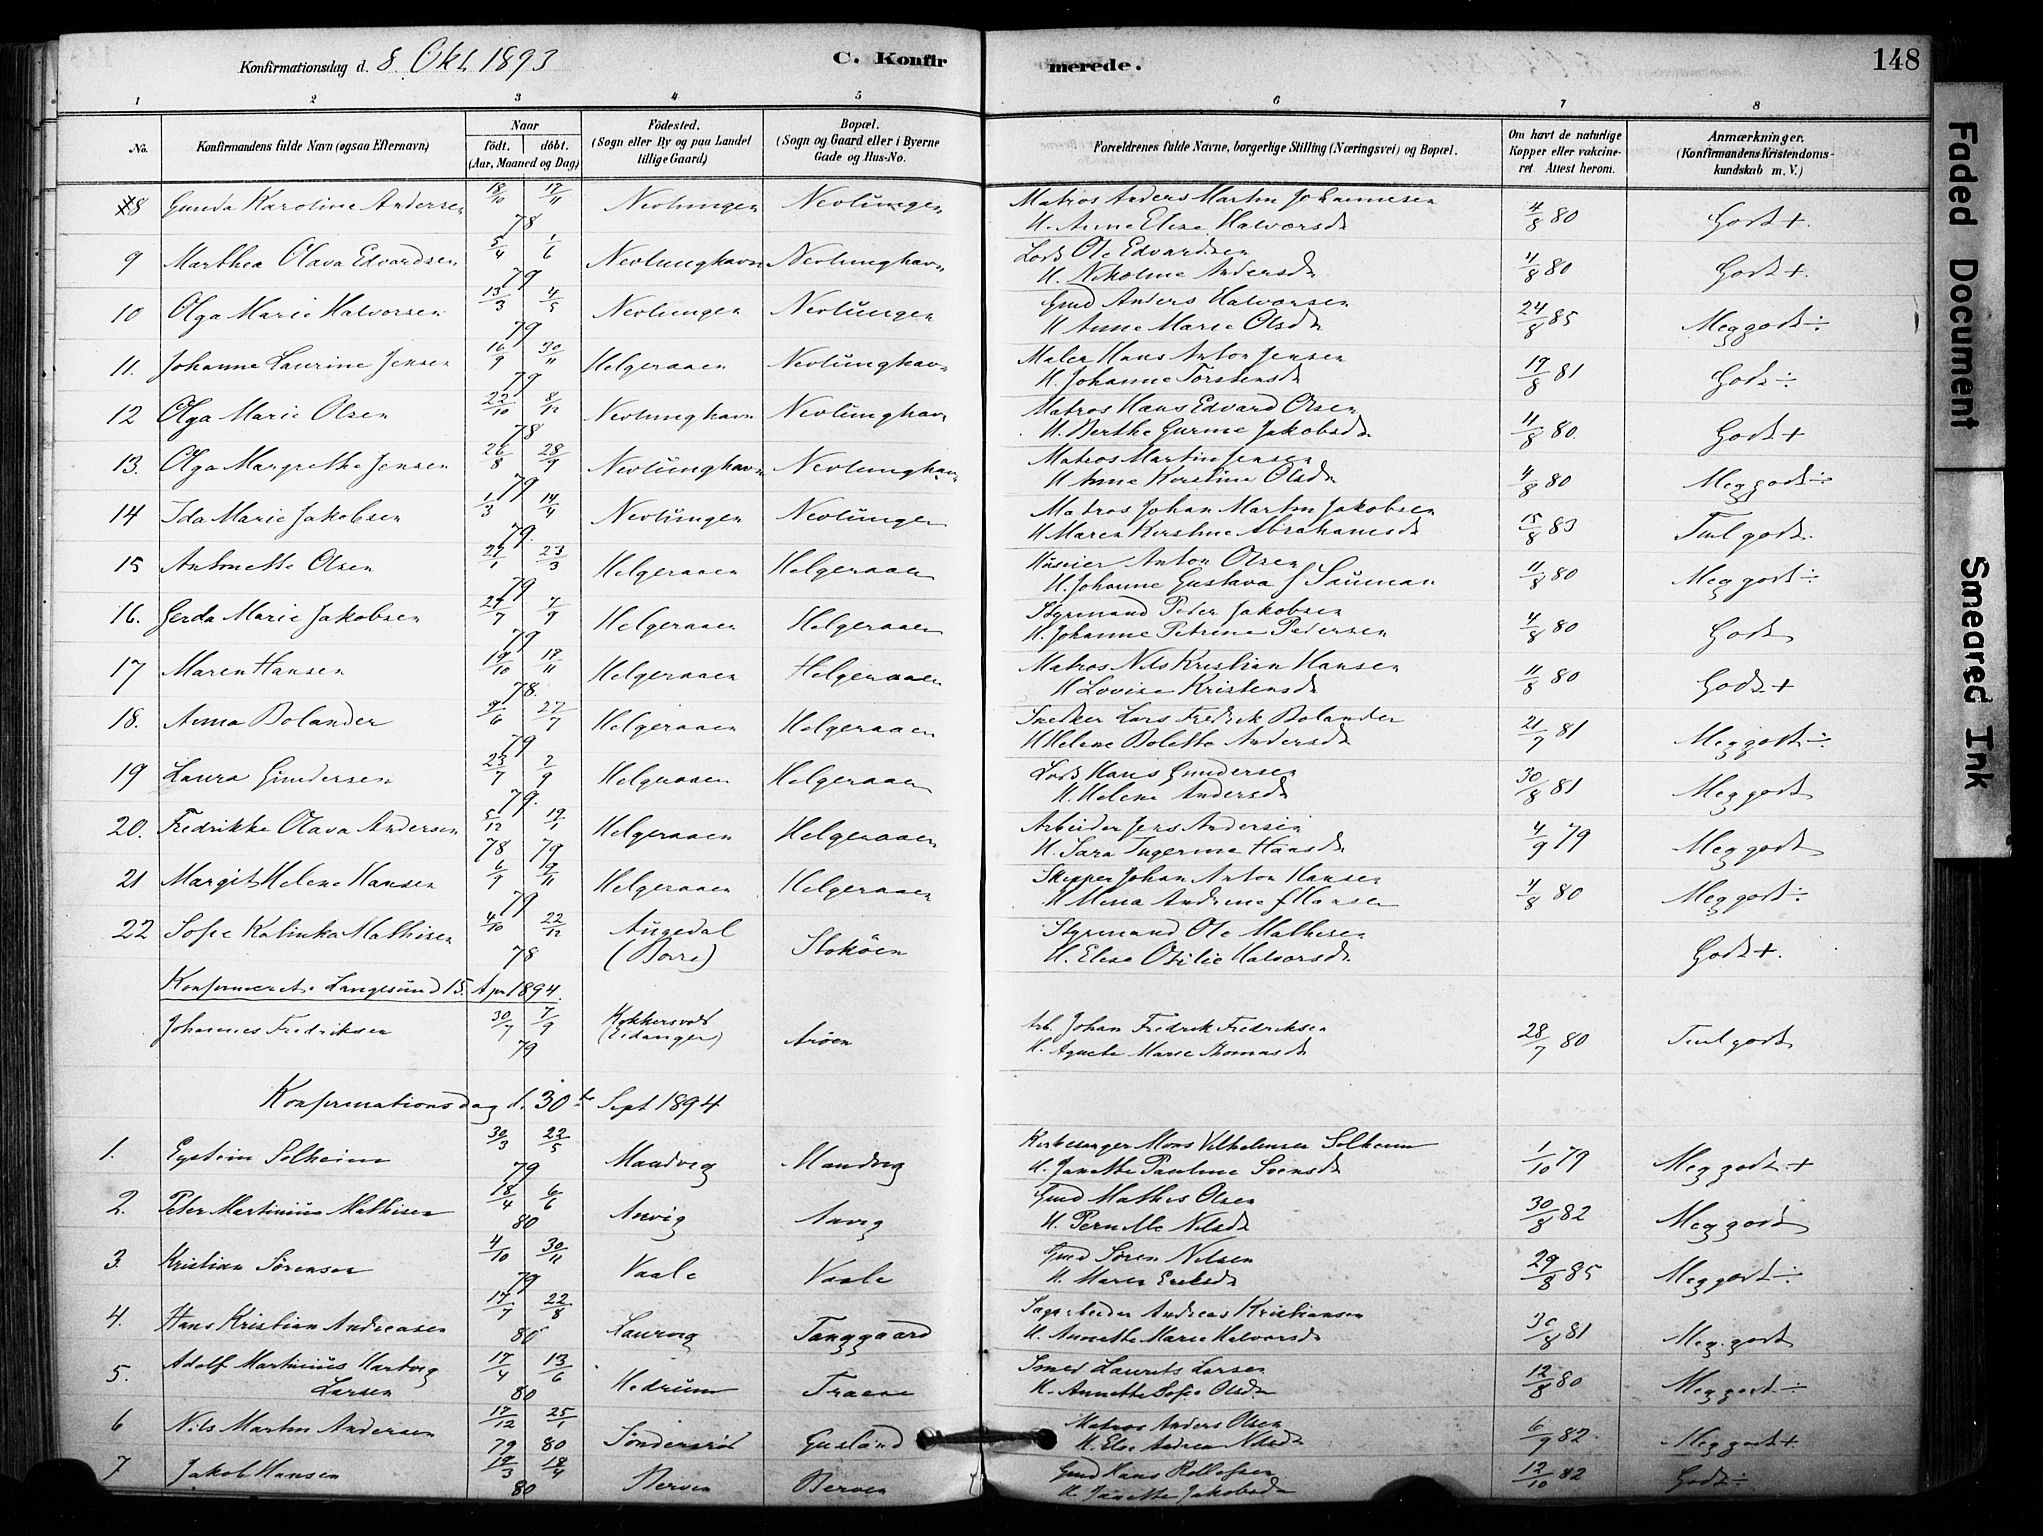 Konfirmationsdag d. 8. Okt. 1893
C. Konfirmerede.
148
1 2 3 4 5 6 7 8
No. Konfirmandens fulde Navn (ogsaa Efternavn) Naar födt. döbt. (Aar, Maaned og Dag) Födested. (Sogn eller By og paa Landet tillige Gaard) Bopæl. (Sogn og Gaard eller i Byerne Gade og Hus-No. Forældrenes fulde Navne, borgerlige Stilling (Næringsvei) og Bopæl. Om havt de naturlige Kopper eller vakcineret Attest herom. Anmærkninger. (Konfirmandens Kristendomskundskab m. V.)
8 Gunda Karoline Andersen 18/10 17/11 78 Nevlungen Nevlungen Matros Anders Martin Johannesen
H. Anne Elise Halvorsdr 4/8 80 Godt +.
9 Marthea Olava Edvardsen 5/4 1/6 79 Nevlunghavn Nevlunghavn Lods Ole Edvardsen
H. Nikoline Andersdr 4/8 80 Godt +.
10 Olga Marie Halvorsen 13/3 4/5 79 Nevlungen Nevlungen Gmd Anders Halvorsen
H Anne Marie Olsdr 24/8 85 Meg godt ÷
11. Johanne Laurine Jensen 16/9 30/11 79 Helgeraaen Nevlunghavn Maler Hans Anton Jensen
H. Johanne Torstensdr 17/8 81 Godt ÷
12 Olga Marie Olsen 22/10 8/12 78 Nevlunghavn Nevlunghavn Matros Hans Edvard Olsen
H. Berthe Gurine Jakobsdr 4/8 80 Godt +
13. Olga Margrethe Jensen 26/8 28/9 79 Nevlunghavn Nevlunghavn Matros Martin Jensen
H Anne Kirstine Olsdr 4/8 80 Meg godt ÷
14 Ida Marie Jakobsen 1/3 14/4 79. Nevlungen Nevlungen Matros Johan Martin Jakobsen
H Maren Kirstine Abrahamsdr 15/8 83 Teml godt.
15 Antonette Olsen 27/1 23/3 79 Helgeraaen Helgeraaen Anton Olsen
H. Johanne Gustava f Sauman 11/8 80 Meg godt ÷
16. Gerda Marie Jakobsen 27/7 7/9 79 Helgeraaen Helgeraaen Styrmand Peter Jakobsen
H. Johanne Petrine Pedersen 4/8 80 Godt
17 Maren Hansen 19/10 17/11 78. Helgeraaen Helgeraaen Matros Nils Kristian Hansen
H Lovise Kristensdr 11/8 80 Godt +
18. Anna Bolander 9/6 27/7 79 Helgeraaen Helgeraaen Snedker Lars Fredrik Bolander
H Helene Bolette Andersdr 21/7 81 Meg godt ÷
19 Laura Gundersen 23/7 7/9 79. Helgeraaen Helgeraaen Lods Hans Gundersen
H. Helene Andersdr 30/8 81 Meg godt
20. Fredrikke Olava Andersen 5/12 19/1 78 79 Helgeraaen Helgeraaen Arbeider Jens Andersen
H. Sara Ingerine Hansdr 4/9 79 Meg godt
21 Margit Helene Hansen 6/9 9/11 79 Helgeraaen Helgeraaen Skipper Johan Anton Hansen
H Mena Andrine f Hansen 4/8 80 Meg godt ÷
22 Sofie Kalinka Mathisen 4/10 22/12 78 Augedal (Borre) Stokøen Styrmand Ole Mathisen
H. Elise Otilie Halvorsdr. Godt +.
Konfirmeret i Langesund 15. Apr 1894.
Johannes Fredriksen 30/7 7/9 79 Kokkersvold (Eidanger) Arøen Arb. Johan Fredrik Fredriksen
H. Agnete Marie Thomasdr 28/7 80 Teml godt
Konfirmationsdag d. 30te Sept 1894
1. Eystein Solheim 30/3 22/5 79 Mandvig Mandvig Kirkesanger Mons Vilhelmsen Solheim
H. Janette Pauline Svensdr 1/10 79 Meg godt +
2. Peter Martinius Mathisen 18/4 6/6 80 Anvig Anvig Gmd Mathis Olsen
H. Pernille Nilsdr 30/8 82 Meg godt
3. Kristian Sørensen 4/10 30/11 79 Vaale Vaale Gmd Søren Nilsen
H. Maren Eriksdr 29/8 85 Meg godt ÷
4. Hans Kristian Andreasen 17/7 22/8 80 Laurvig Tanggaard Sagarbeider Andreas Kristiansen
H. Annette Marie Halvorsdr 30/8 81 Meg. godt
5. Adolf Martinius Hartvig Larsen 17/4 13/6 80 Hedrum Traaene Smed Laurits Larsen
H. Annette Sofie Olsdr 12/8 80 Meg godt ÷
6 Nils Martin Andersen 17/12 25/1 79 80 Søndersrød Gusland Matros Anders Olsen
H. Else Andrea Nilsdr 6/9 82. Meg godt +
7 Jakob Hansen 19/3 18/4 80 Berven Berven Gmd Hans Rollefsen
H. Janette Jakobsdr 12/10 82 Godt ÷
Faded Document
Smeared Ink